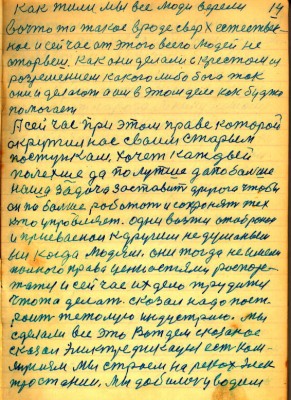 как жили мы все люди верели 14
вочто та такое вроде сверхестествен-
ное и сейчас от этого всего людей не
оторвеш. как они делали с крестом и
розрешением какого либо бога так
они и делают а им в этом деле как будто
помогает
А сейчас при этом праве которой
окрутил нас своим старым
поступкам, хочет каждый
полехше да полутше да поболше
наша задача заставит другога чтобы
он поболше работал и сохронят тех
кто управляет. одни вожжи
и к другим не душевны
ни когда людям. они тогда не имели
такого права ценностями
и сейчас их дело трудиту
чтота делат. сказал надо пост-
роит тежолую индустрию. мы
сделали все это Вождем сказоное
сказал Электрефикацыя ест ком-
мунизм Мы строем на реках Элек-
тростанции. Мы добилису водит